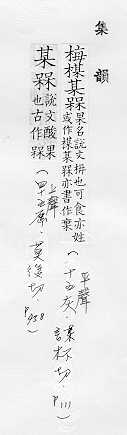 集韻
梅楳某槑 果名說文枏也可食亦姓
或作楳某槑亦書作
平聲
(十五灰．謀杯切．P111)
某槑 說文酸果
也古作槑
上聲
(五厚．莫後切．P938)